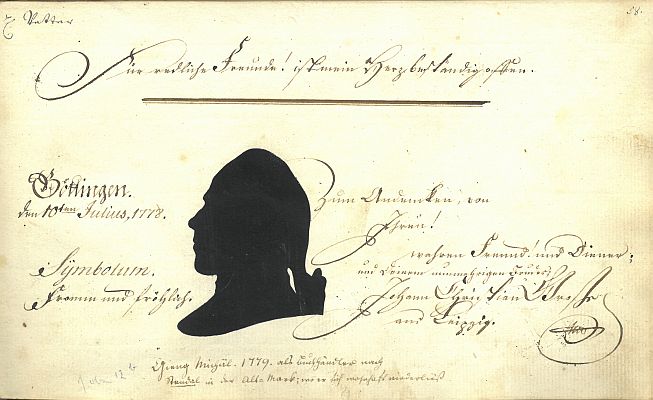 Vetter
58.
Für redliche Freunde! ist mein Herz beständig offen.
Göttingen.
den 10ten Julius, 1778.
Symbolum.
Fromm und fröhlich.
Zum Andencken, von
Ihren!
wahren Freund! und Diener;
und Dero nunmehrigen
Johann Christian Grosse
aus Leipzig.
Gieng 1779. als Buchhändler nach
Stendal in der Alt-Mark; wo er sich niederließ